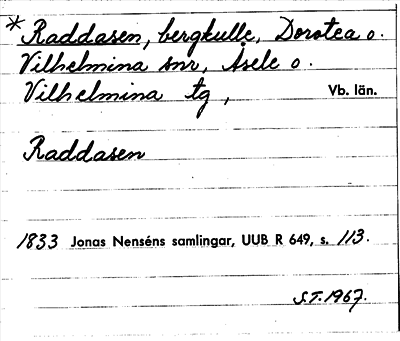 * Raddasen, bergkulle, Dorotea o.
Vilhelmina snr, Åsele o.
Vilhelmina tg, Vb. län.
Raddasen
1833 Jonas Nenséns samlingar, UUB R 649, s. 113.
S.T. 1967.